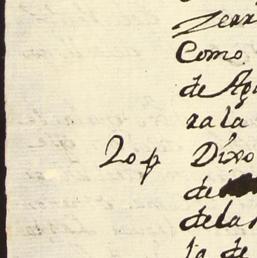 Zerr
Como
de Aqu
ra la
20 p Dixo
de
de la
la de